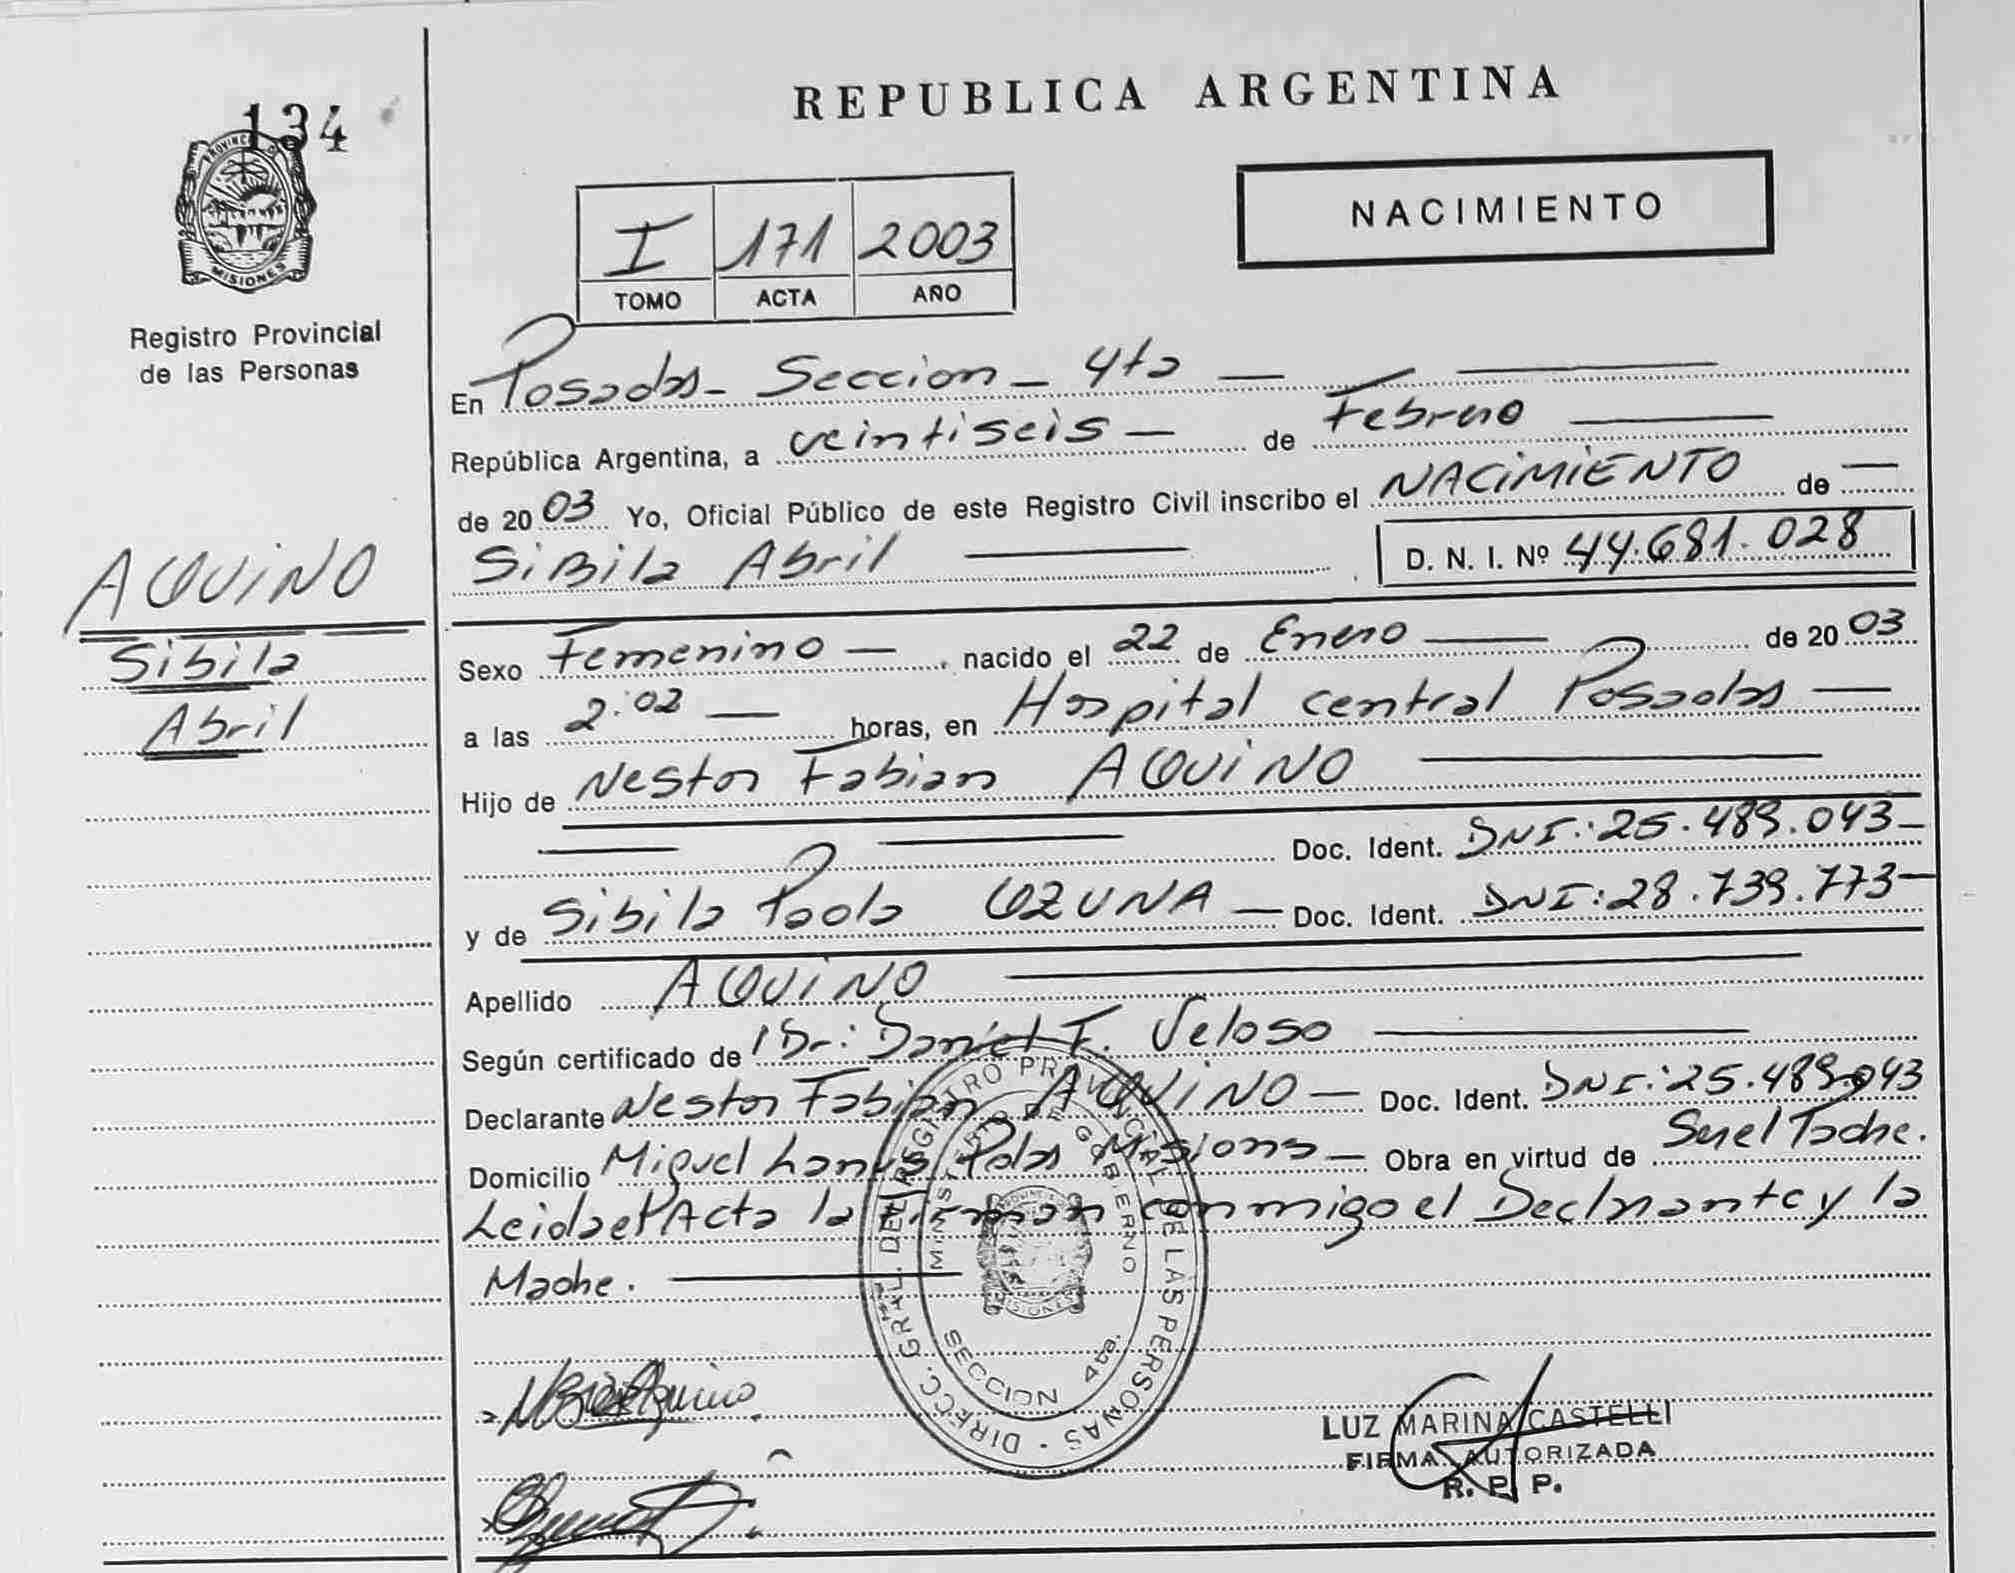 134
PROVINCIA DE
MISIONES
Registro Provincial
de las Personas
AQUINO
Sibila
Abril
REPUBLICA ARGENTINA
NACIMIENTO
I 171 2003
TOMO ACTA AÑO
En Posadas - Seccion - 4ta —
República Argentina, a veintiseis — de Febrero —
de 20 03 Yo, Oficial Público de este Registro Civil inscribo el NACIMIENTO de —
SiBila Abril — D. N. I. Nº 44.681.028
Sexo Femenino — , nacido el 22 de Enero — de 20 03
a las 2:02 — horas, en Hospital central Posadas —
Hijo de Nestor Fabian AQUINO —
— — Doc. Ident. DNI: 25.489.043 —
y de Sibila Paola OZUNA — Doc. Ident. DNI: 28.739.773 —
Apellido AQUINO —
Según certificado de Dr: Daniel F. Veloso —
Declarante Nestor Fabian AQUINO — Doc. Ident. DNI: 25.489.043
Domicilio Miguel Lanus Pdas Misions — Obra en virtud de Ser el Padre.
Leida el Acta la firman conmigo el Declarante y la
Madre. —
DIRECC. GRAL. DEL REGISTRO PROVINCIAL DE LAS PERSONAS
MINISTERIO DE GOBIERNO
MISIONES
SECCION 4ta.
Aquino
LUZ MARINA CASTELLI
FIRMA AUTORIZADA
R. P. P.